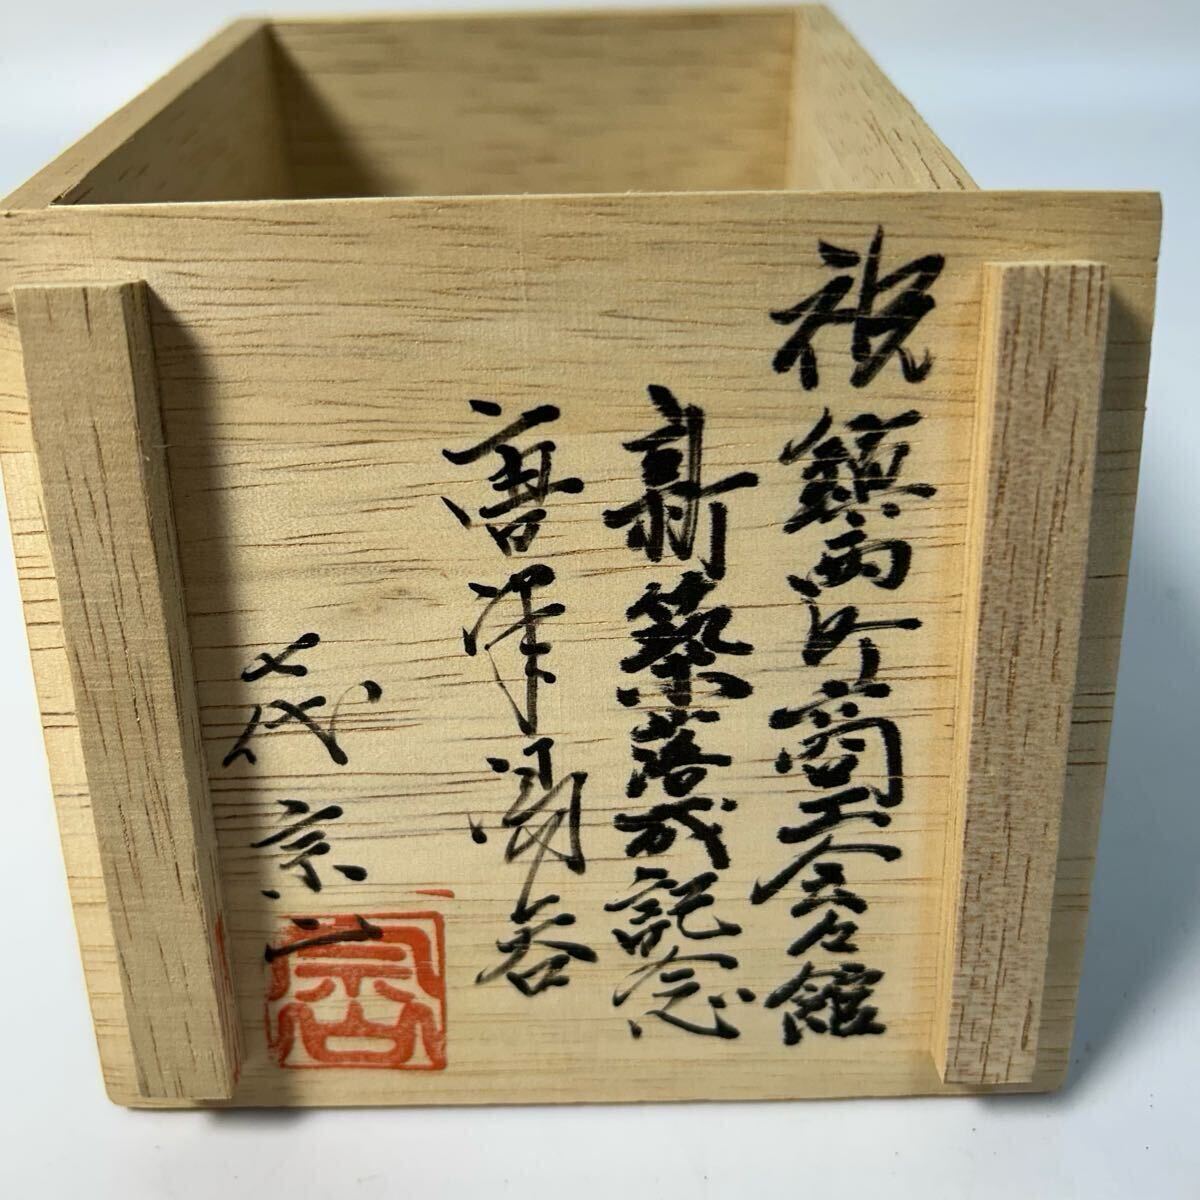 祝 鎮西町商工会々館
新築落成記念
唐津湯呑
七代 宗